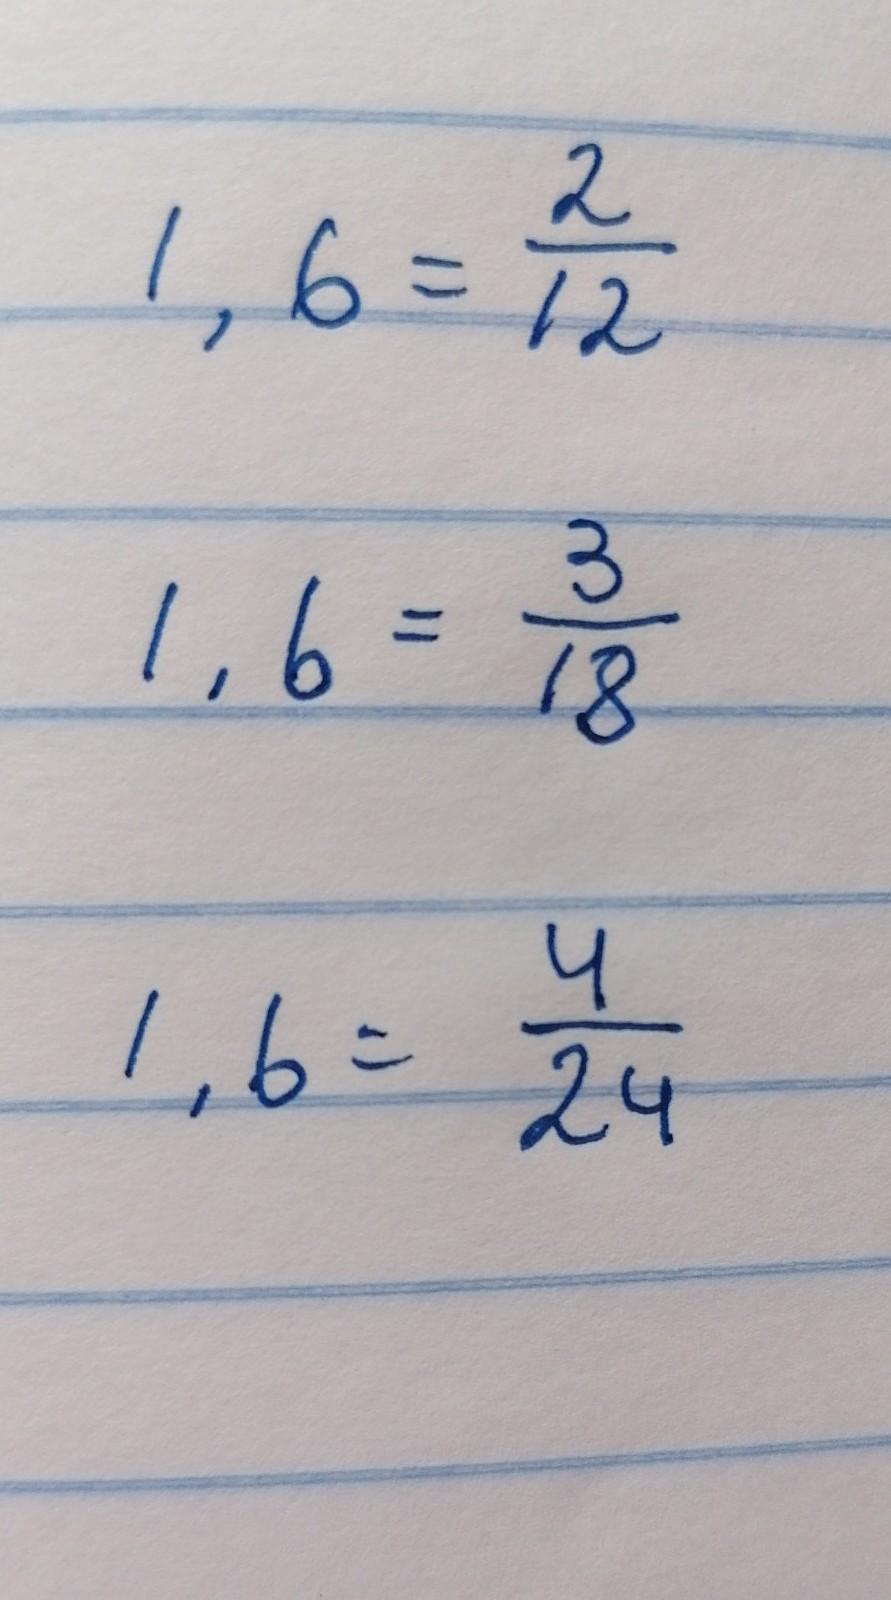 1,6 = 2/12
1,6 = 3/18
1,6 = 4/24